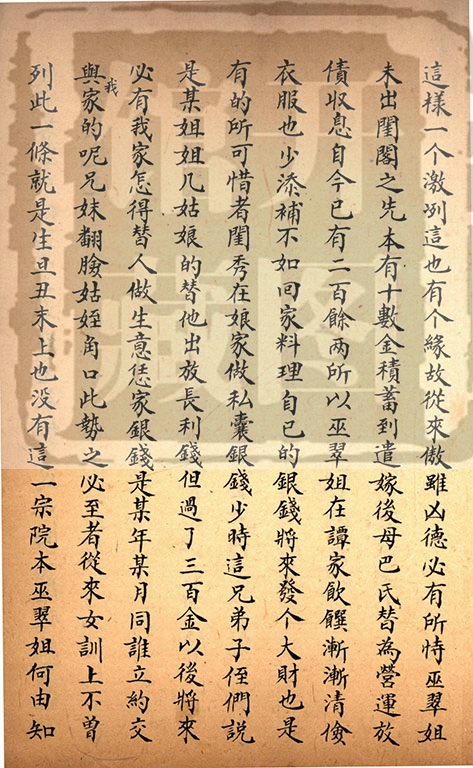 這樣一个激咧這也有个緣故從來傲雖凶德必有所恃巫翠姐
未出閨閣之先本有十數金積蓄到遣嫁後母巴氏替為營運放
債収息自今已有二百餘両所以巫翠姐在譚家飲饌漸漸清儉
衣服也少添補不如回家料理自已的銀錢將來發个大財也是
有的所可惜者閨秀在娘家做私囊銀錢少時這兄弟子侄們說
是某姐姐几姑娘的替他出放長利錢但過了三百金以後將來
必有我家怎得替人做生意恁家銀錢是某年某月同誰立約交
與我家的呢兄妹翻臉姑姪角口此勢之必至者從來女訓上不曽
列此一條就是生旦丑末上也没有這一宗院本巫翠姐何由知